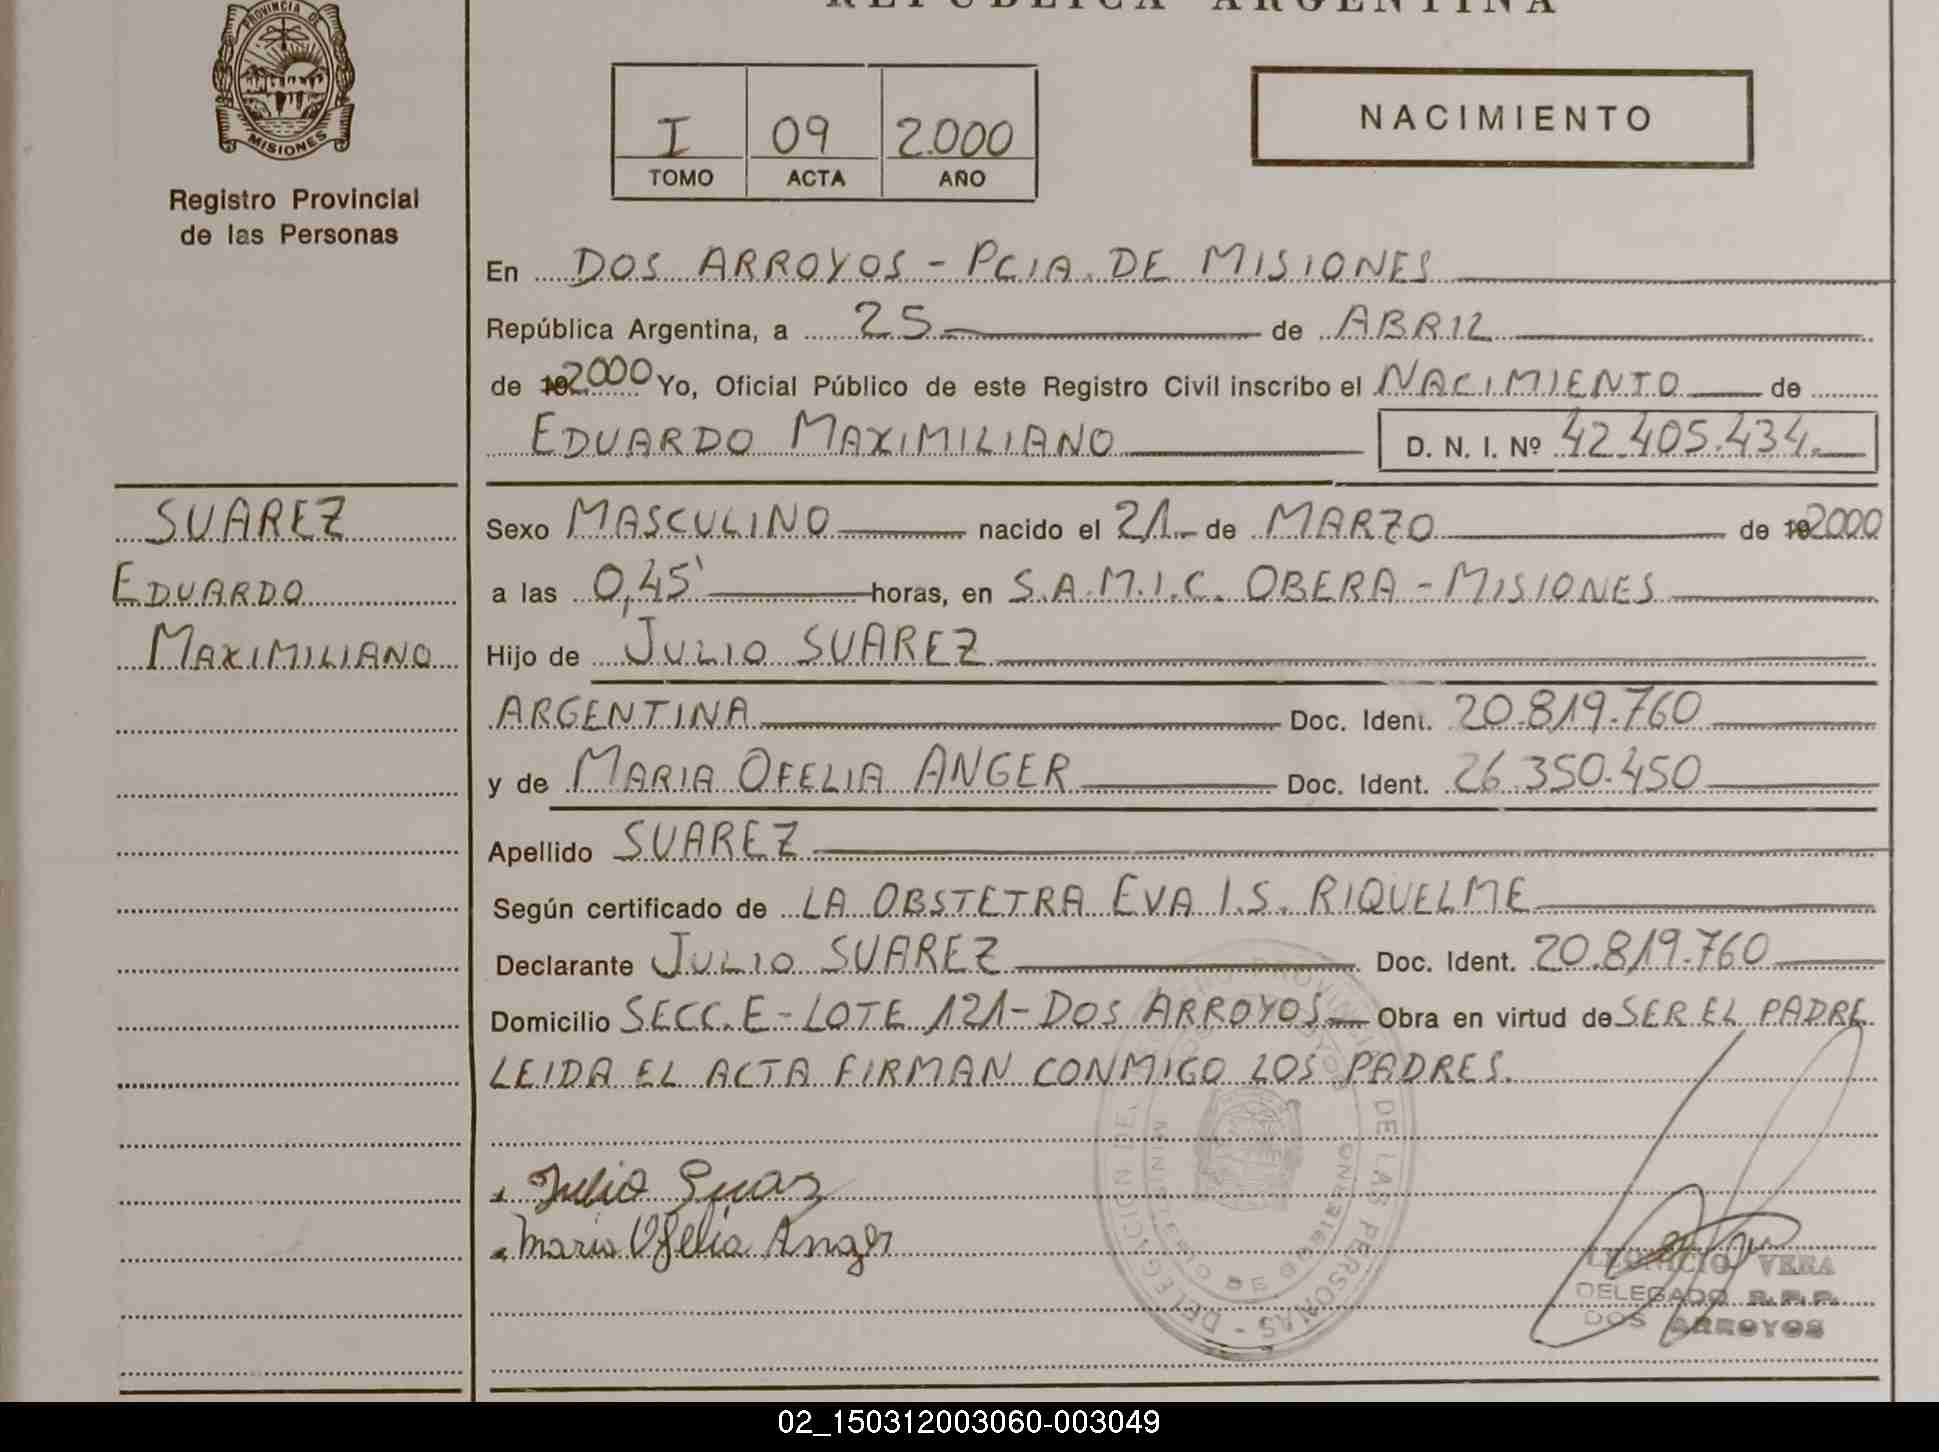 REPUBLICA ARGENTINA
PROVINCIA DE
MISIONES
Registro Provincial
de las Personas
I 09 2.000
TOMO ACTA AÑO
NACIMIENTO
En DOS ARROYOS - PCIA. DE MISIONES
República Argentina, a 25 de ABRIL
de 19 2000 Yo, Oficial Público de este Registro Civil inscribo el NACIMIENTO de
EDUARDO MAXIMILIANO D. N. I. Nº 42.405.434.
SUAREZ
EDUARDO
MAXIMILIANO
Sexo MASCULINO nacido el 21 de MARZO de 19 2000
a las 0,45' horas, en S.A.M.I.C. OBERA - MISIONES
Hijo de JULIO SUAREZ
ARGENTINA Doc. Ident. 20.819.760
y de MARIA OFELIA ANGER Doc. Ident. 26.350.450
Apellido SUAREZ
Según certificado de LA OBSTETRA EVA I.S. RIQUELME
Declarante JULIO SUAREZ Doc. Ident. 20.819.760
Domicilio SECC. E - LOTE 121 - DOS ARROYOS Obra en virtud de SER EL PADRE
LEIDA EL ACTA FIRMAN CONMIGO LOS PADRES.
Julio Suaz
Maria Ofelia Anger
DELEGACION DE
DE LAS PERSONAS
LEONICIO VERA
DELEGADO R.P.P.
DOS ARROYOS
02_150312003060-003049